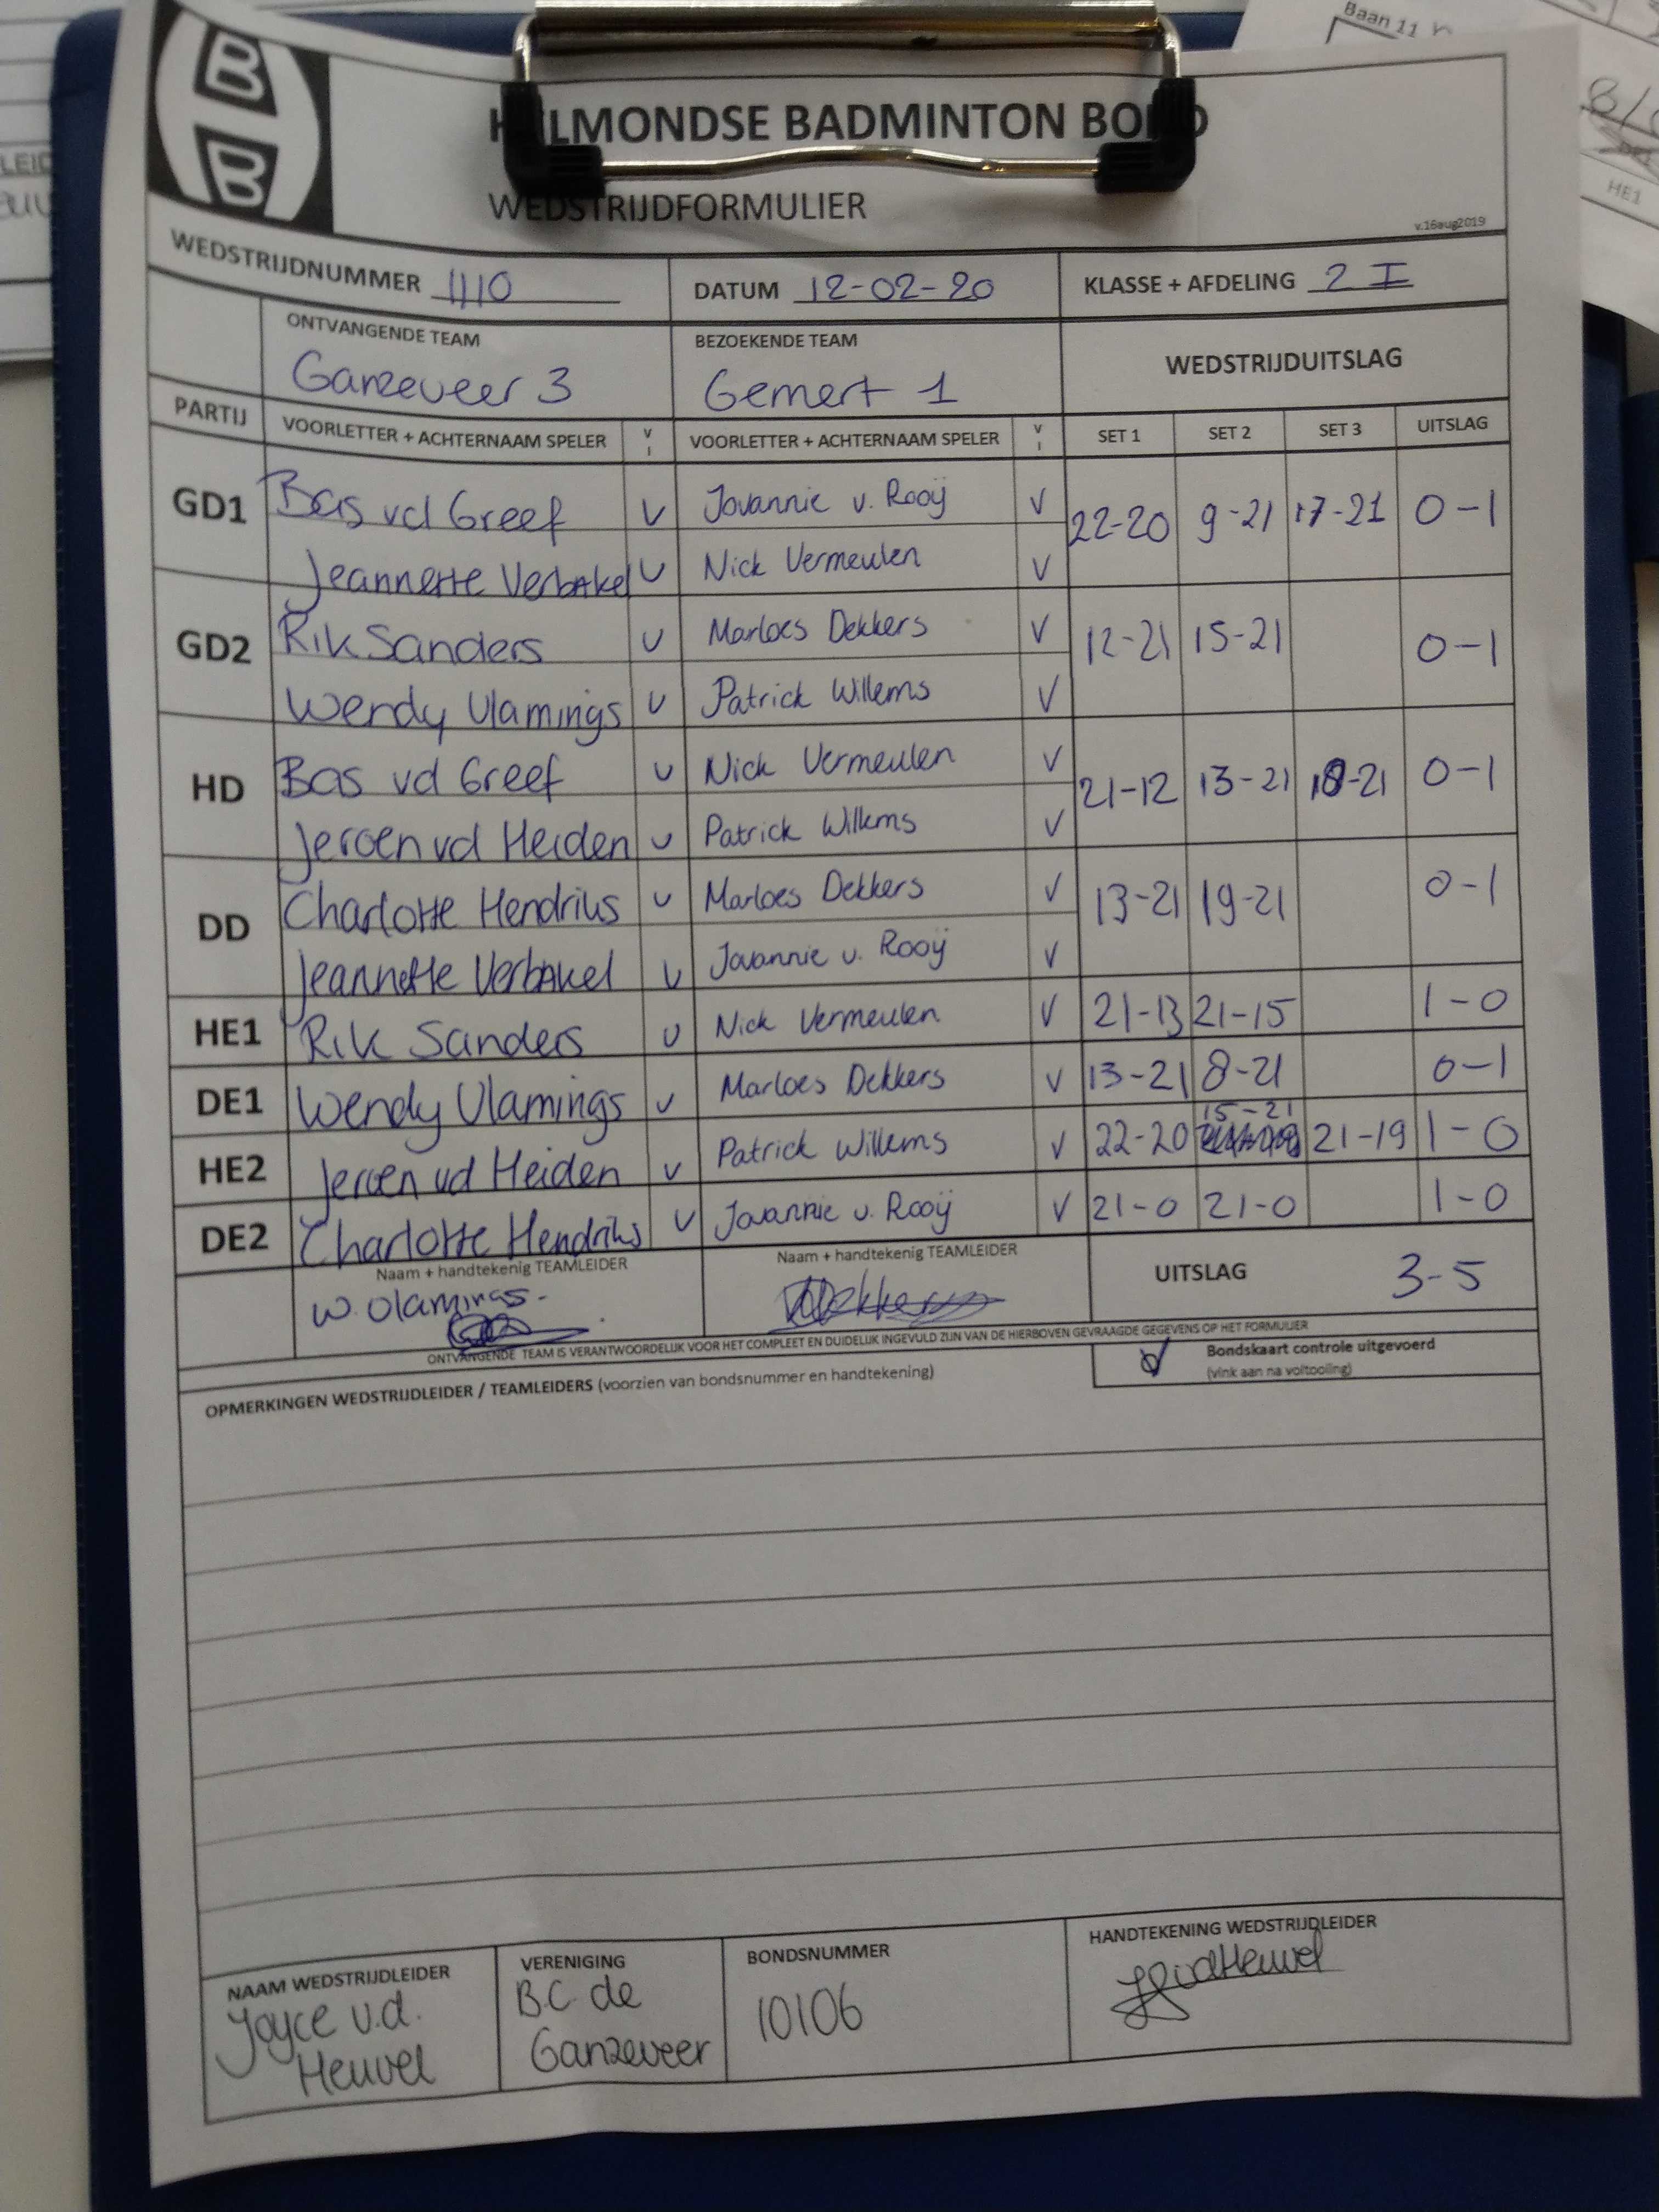 Baan 11
B
B
HELMONDSE BADMINTON BOND
WEDSTRIJDFORMULIER
v.16aug2019
WEDSTRIJDNUMMER 1110 DATUM 12-02-20 KLASSE + AFDELING 2 I
ONTVANGENDE TEAM BEZOEKENDE TEAM WEDSTRIJDUITSLAG
Ganzeveer 3 Gemert 1
PARTIJ VOORLETTER + ACHTERNAAM SPELER V I VOORLETTER + ACHTERNAAM SPELER V I SET 1 SET 2 SET 3 UITSLAG
GD1 Bas vd Greef V Jovannie v. Rooij V 22-20 9-21 17-21 0-1
Jeannette Verbakel V Nick Vermeulen V
GD2 Rik Sanders V Marloes Dekkers V 12-21 15-21 0-1
Wendy Vlamings V Patrick Willems V
HD Bas vd Greef V Nick Vermeulen V 21-12 13-21 18-21 0-1
Jeroen vd Heiden V Patrick Willems V
DD Charlotte Hendriks V Marloes Dekkers V 13-21 19-21 0-1
Jeannette Verbakel V Jovannie v. Rooij V
HE1 Rik Sanders V Nick Vermeulen V 21-13 21-15 1-0
DE1 Wendy Vlamings V Marloes Dekkers V 13-21 8-21 0-1
HE2 Jeroen vd Heiden V Patrick Willems V 22-20 15-21 21-19 1-0
DE2 Charlotte Hendriks V Jovannie v. Rooij V 21-0 21-0 1-0
Naam + handtekenig TEAMLEIDER Naam + handtekenig TEAMLEIDER UITSLAG 3-5
W. Vlamings. Dekkers
ONTVANGENDE TEAM IS VERANTWOORDELIJK VOOR HET COMPLEET EN DUIDELIJK INGEVULD ZIJN VAN DE HIERBOVEN GEVRAAGDE GEGEVENS OP HET FORMULIER
Bondskaart controle uitgevoerd
(vink aan na voltooiing)
OPMERKINGEN WEDSTRIJDLEIDER / TEAMLEIDERS (voorzien van bondsnummer en handtekening)
NAAM WEDSTRIJDLEIDER VERENIGING BONDSNUMMER HANDTEKENING WEDSTRIJDLEIDER
Joyce v.d. B.C. de 10106 JvdHeuvel
Heuvel Ganzeveer
HE1